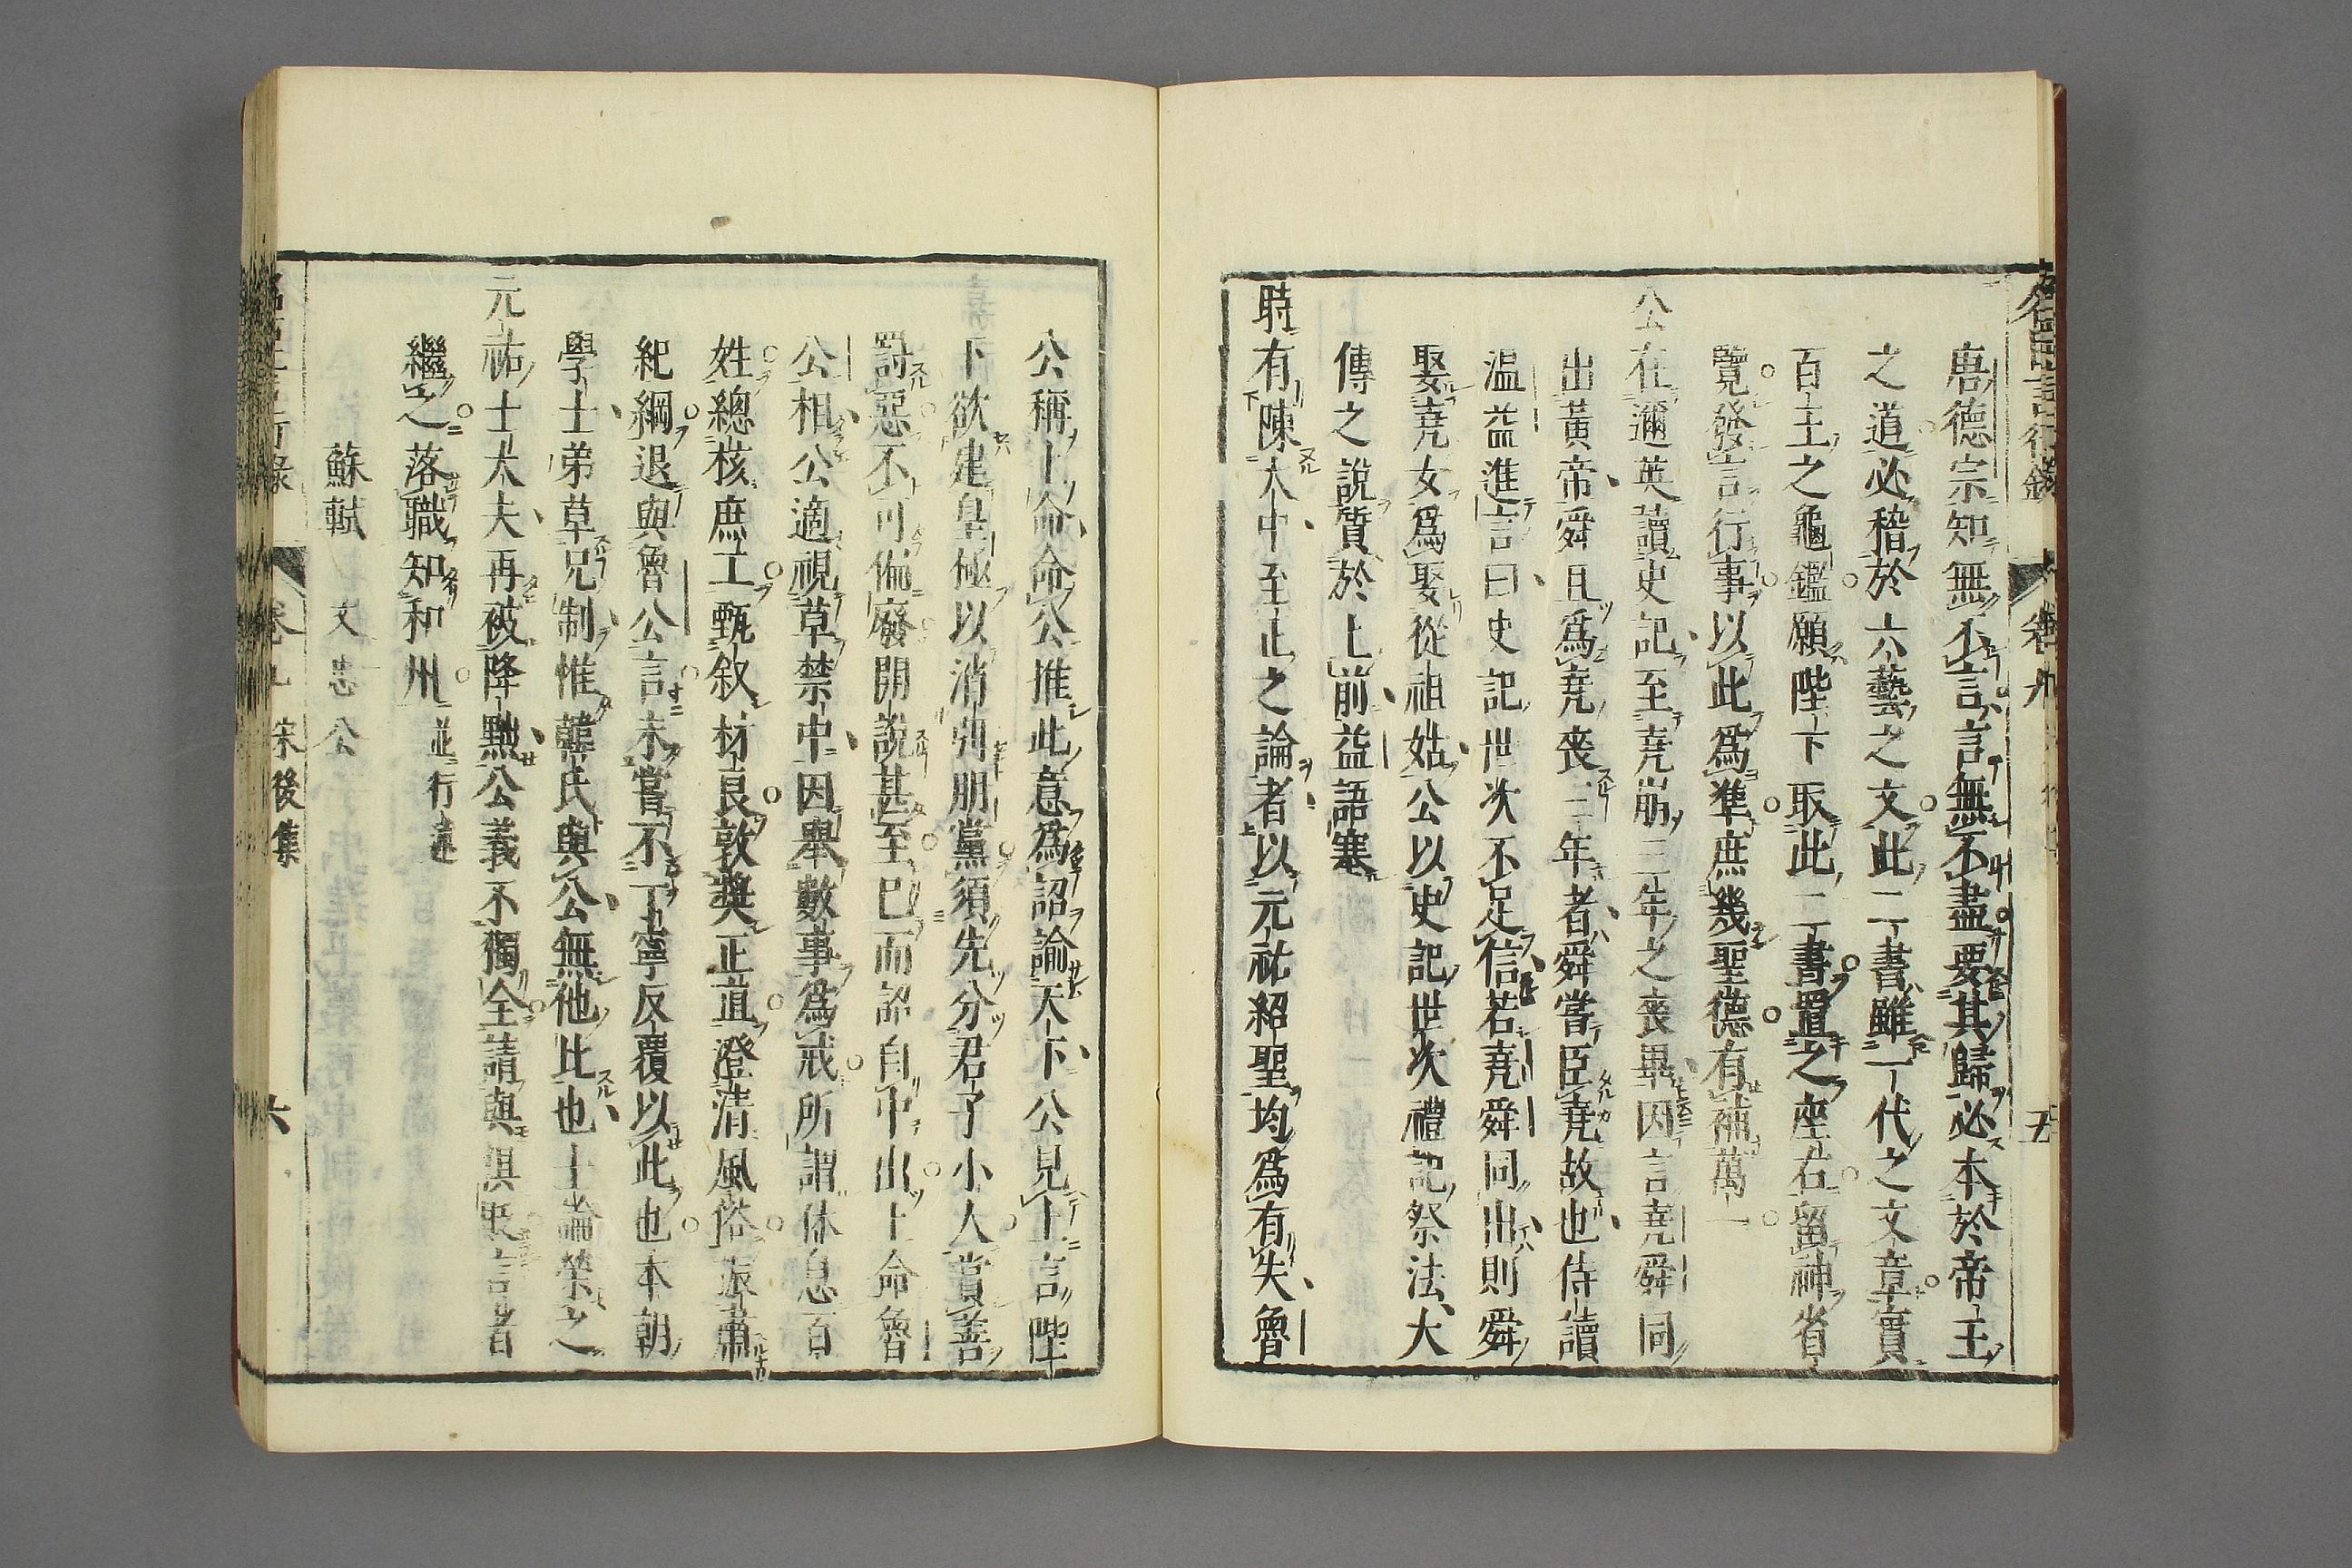 唐德宗知無不言言無不盡要其歸必本於帝王
之道必稽於六藝之文此二書雖一代之文章實
百王之龜鑑願陛下取此二書置之座右留神省
覽發言行事以此爲準庶幾聖德有補萬一
公在邇英讀史記至堯崩三年之喪畢因言堯舜同
出黃帝舜且爲堯喪三年者舜嘗臣堯故也侍讀
溫益進言曰史記世次不足信若堯舜同出則舜
娶堯女爲娶從祖姑公以史記世次禮記祭法大
傳之說質於上前益語塞
時有陳大中至正之論者以元祐紹聖均爲有失魯
公稱上命命公推此意爲詔諭天下公見上言陛
下欲建皇極以消弭朋黨須先分君子小人賞善
罰惡不可偏廢開說甚至已而詔自中出上命魯
公相公適視草禁中因舉數事爲戒所謂休息百
姓總核庶工甄叙材良敦奬正直澄清風俗振肅
紀綱退與魯公言未嘗不丁寧反覆以此也本朝
學士弟草兄制惟韓氏與公無他比也士論榮之
元祐士大夫再被降黜公義不獨全請與俱貶言者
繼之落職知和州 並行述
蘇軾 文忠公
卷九 宋後集
六